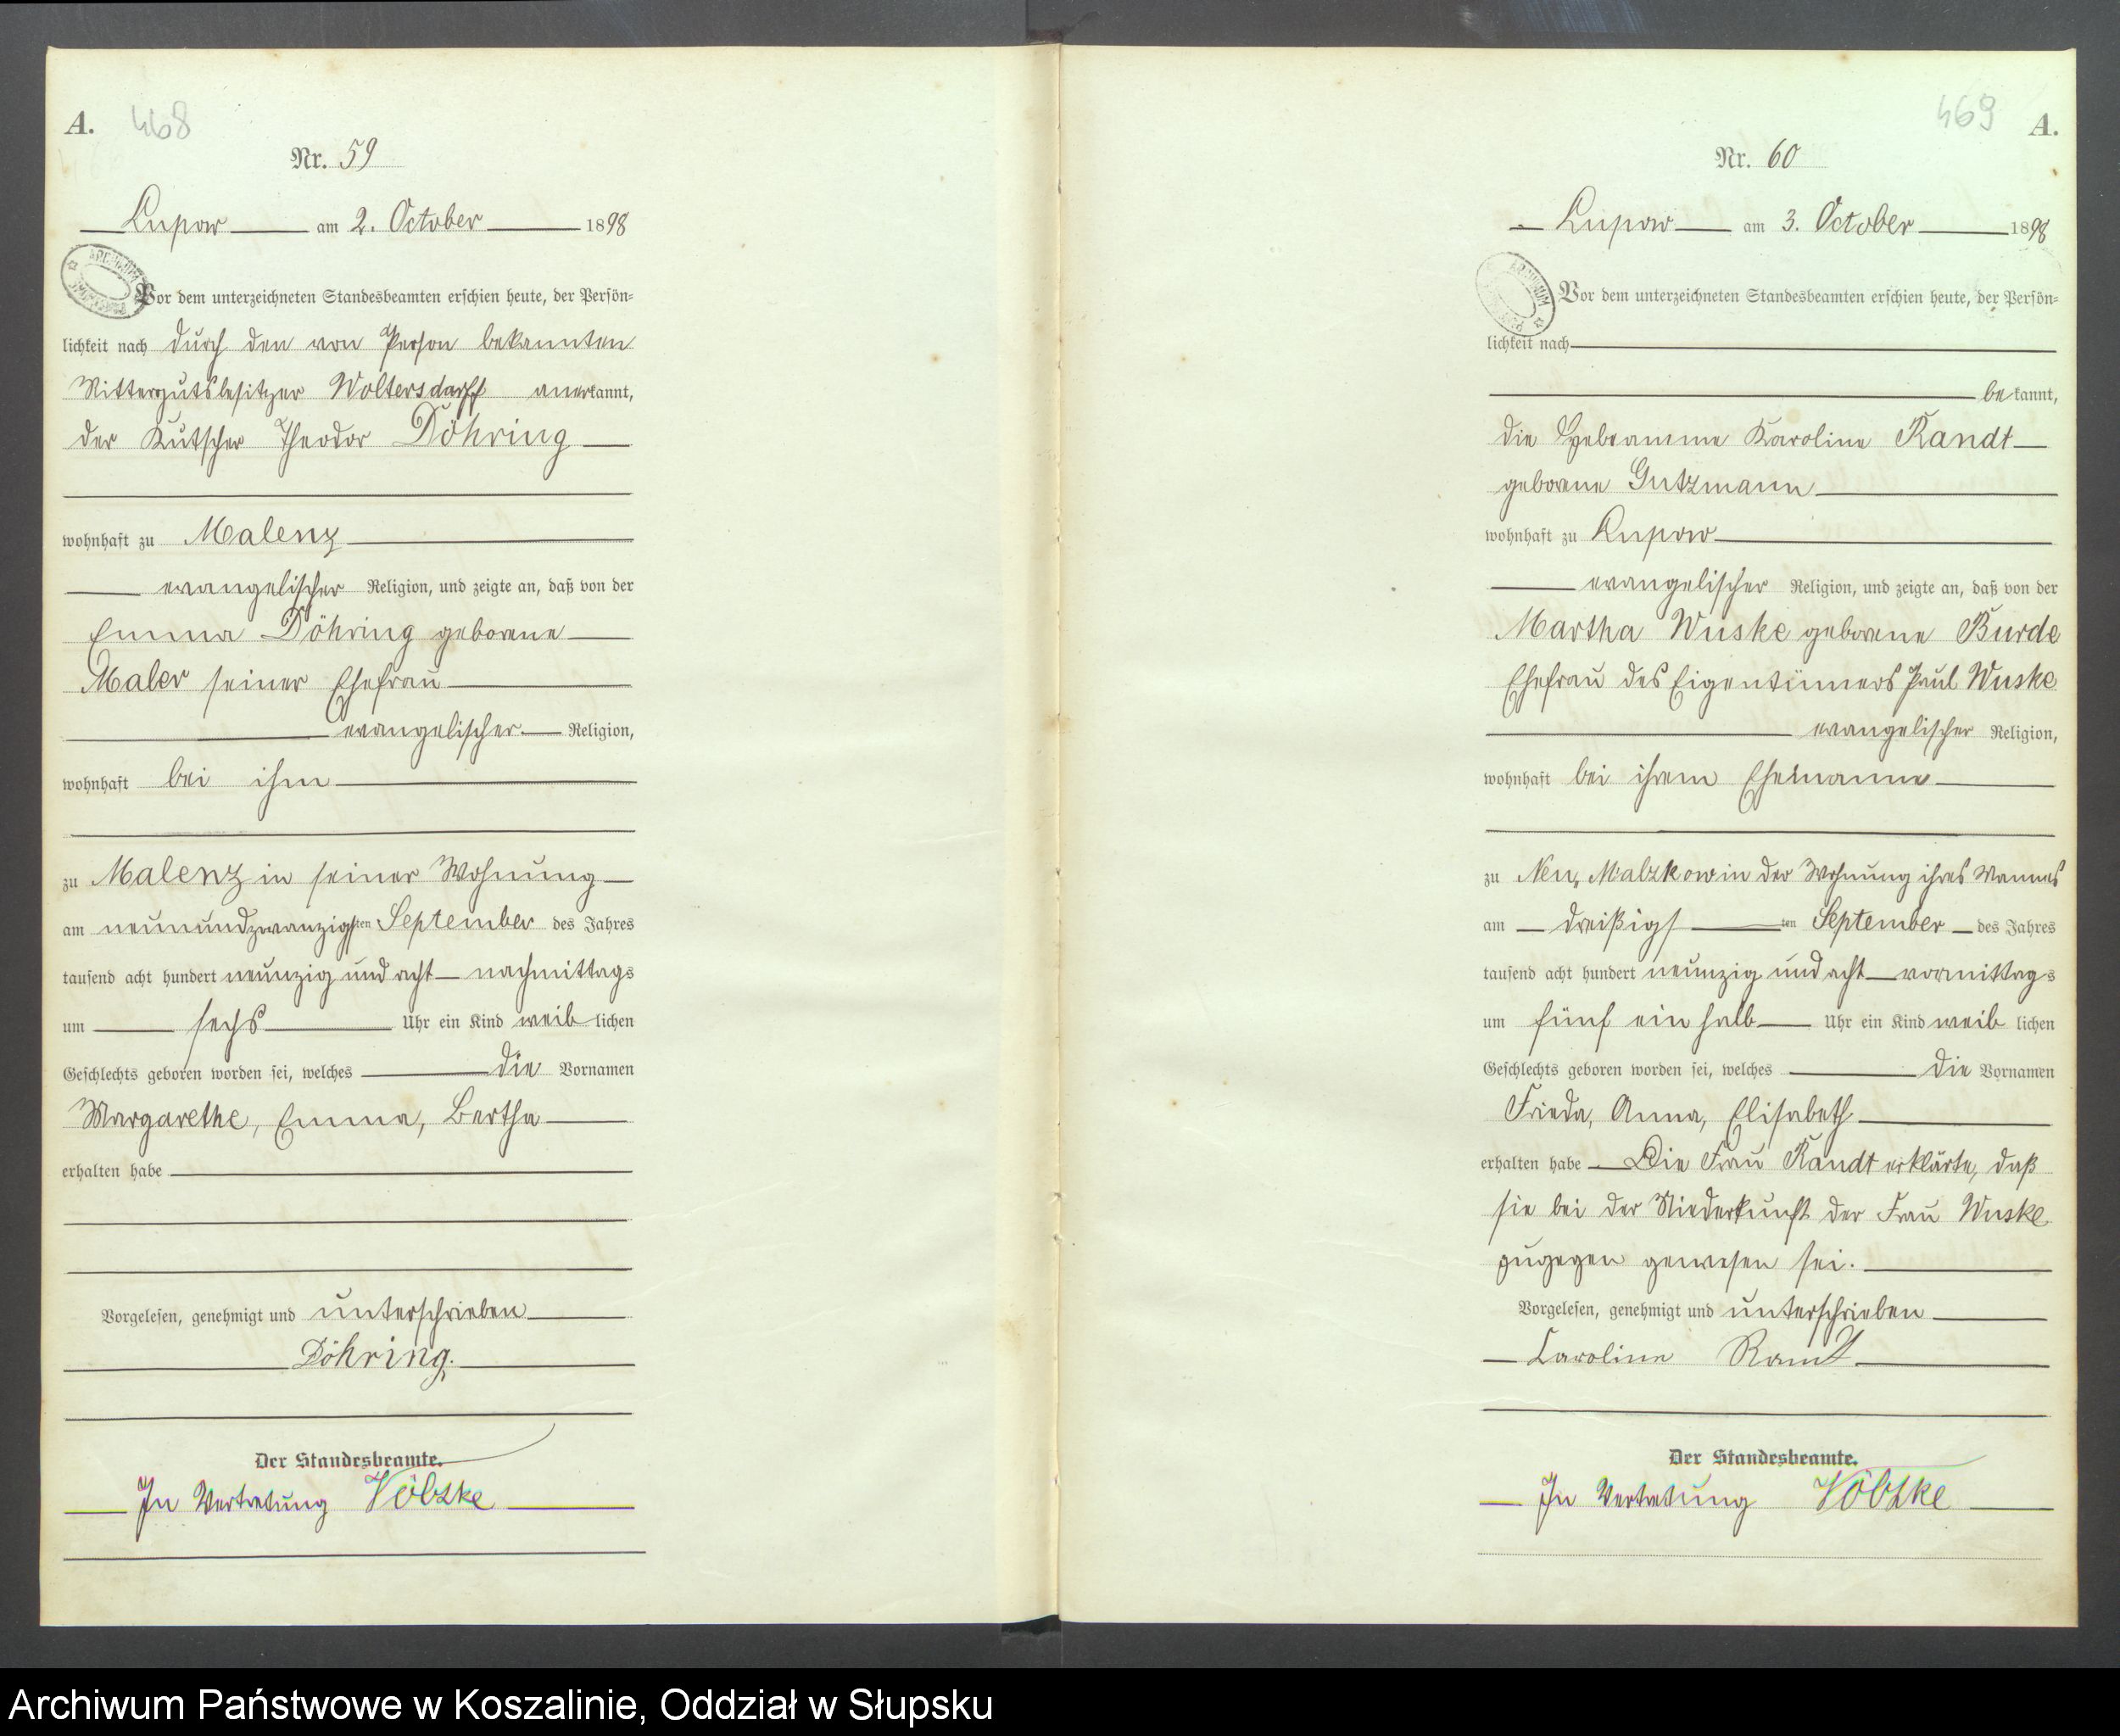 A. 468
Nr. 59
Lupow am 2. October 1898
Vor dem unterzeichneten Standesbeamten erschien heute, der Persön=
lichkeit nach durch den von Person bekannten
Rittergutsbesitzer Woltersdorff anerkannt,
der Kutscher Theodor Döhring
wohnhaft zu Malenz
evangelischer Religion, und zeigte an, daß von der
Emma Döhring geborene
Maler seiner Ehefrau
evangelischer Religion,
wohnhaft bei ihm
zu Malenz in seiner Wohnung
am neunundzwanzigsten September des Jahres
tausend acht hundert neunzig und acht nachmittags
um sechs Uhr ein Kind weiblichen
Geschlechts geboren worden sei, welches die Vornamen
Margarethe, Emma, Bertha
erhalten habe
Vorgelesen, genehmigt und unterschrieben
Döhring.
Der Standesbeamte.
In Vertretung Völzke
469 A.
Nr. 60
Lupow am 3. October 1898
Vor dem unterzeichneten Standesbeamten erschien heute, der Persön=
lichkeit nach
bekannt,
die Hebeamme Karoline Randt
geborene Gutzmann
wohnhaft zu Lupow
evangelischer Religion, und zeigte an, daß von der
Martha Wuske geborene Burde
Ehefrau des Eigentümers Paul Wuske
evangelischer Religion,
wohnhaft bei ihrem Ehemanne
zu Neu Malzkow in der Wohnung ihres Mannes
am dreißigsten September des Jahres
tausend acht hundert neunzig und acht vormittags
um fünf ein halb Uhr ein Kind weiblichen
Geschlechts geboren worden sei, welches die Vornamen
Frieda, Anna, Elisabeth
erhalten habe Die Frau Randt erklärte, daß
sie bei der Niederkunft der Frau Wuske
zugegen gewesen sei.
Vorgelesen, genehmigt und unterschrieben
Caroline Randt
Der Standesbeamte.
In Vertretung Völzke
Archiwum Państwowe w Koszalinie, Oddział w Słupsku